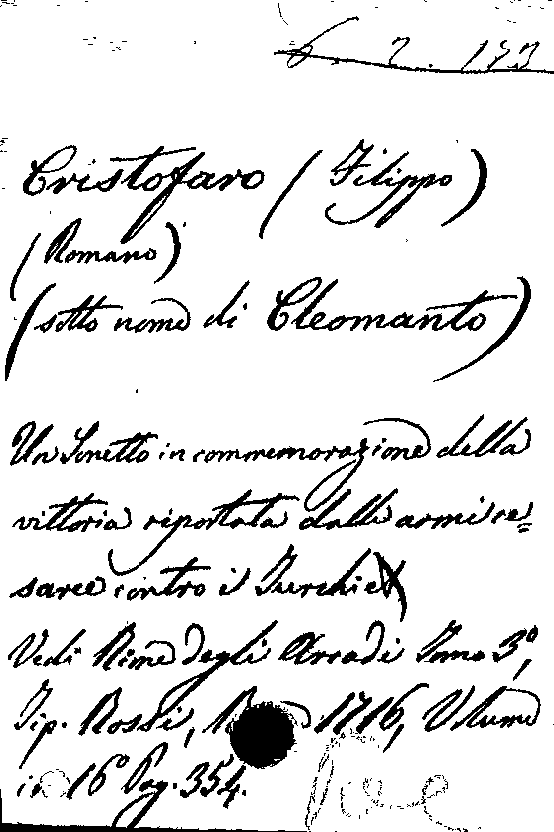 6. 2. 173
Cristofaro (Filippo)
(Romano)
(sotto nome di Cleomanto)
Un Sonetto in commemorazione della
vittoria riportata dalle armi ce=
saree contro i Turchi
Vedi Rime degli Arcadi Tomo 3º,
Tip. Rossi, 1716, Volume
in 16º Pag. 354.